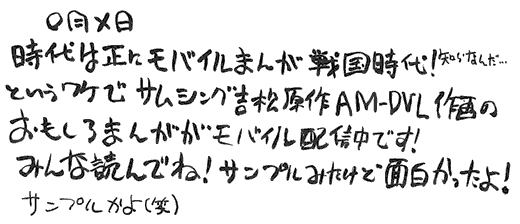 〇月×日
時代は正にモバイルまんが戦国時代!知らなんだ…
というワケでサムシング吉松原作AM-DVL作画の
おもしろまんががモバイル配信中です!
みんな読んでね!サンプルみたけど面白かったよ!
サンプルかよ(笑)